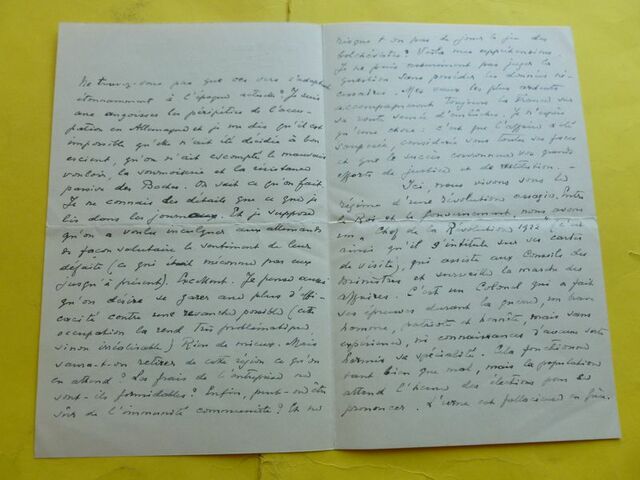 Ne trouvez-vous pas que ces vers s'adaptent
étonnamment à l'époque actuelle? Je suis
avec angoisse les péripéties de l'occu-
pation en Allemagne et je me dis qu'il est
impossible qu'elle n'ait été décidée à bon
escient, qu'on n'ait escompté le mauvais
vouloir, la sournoiserie et la résistance
passive des Boches. On sait ce qu'on fait.
Je ne connais des détails que ce que je
lis dans les journaux. Et je suppose
qu'on a voulu inculquer aux allemands
de façon salutaire le sentiment de leur
défaite (ce qui était méconnu par eux
jusqu'à présent). Excellent. Je pense aussi
qu'on désire se garer avec plus d'effi-
cacité contre une revanche possible (cette
occupation la rend très problématique
sinon irréalisable) Rien de mieux. Mais
saura-t-on retirer de cette région ce qu'on
en attend? Les frais de l'entreprise ne
sont-ils formidables? Enfin, peut-on être
sûr de l'immunité communiste? Et ne
risque t on pas de jouer le jeu des
bolchévistes? Voilà mes appréhensions.
Je ne puis évidemment pas juger la
question sans posséder les données né-
cessaires. Mes vœux les plus ardents
accompagnent toujours la France sur
sa route semée d'embûches. Je n'espère
qu'une chose: c'est que l'affaire a été
soupesée, considérée sous toutes ses faces
et que le succès couronnera ses grands
efforts de justice et de restitution. —
Ici, nous vivons sous le
régime d'une révolution assagie. Entre
le Roi et le gouvernement, nous avons
un "Chef de la Révolution 1922" (c'est
ainsi qu'il s'intitule sur ses cartes
de visite), qui assiste aux Conseils des
ministres et surveille la marche des
affaires. C'est un Colonel qui a fait
ses épreuves durant la guerre, un brave
homme, patriote et honnête, mais sans
expérience, ni connaissances d'aucune sorte
hormis sa spécialité. Cela fonctionne
tant bien que mal, mais la population
attend l'heure des élections pour se
prononcer. L'urne est fallacieuse en